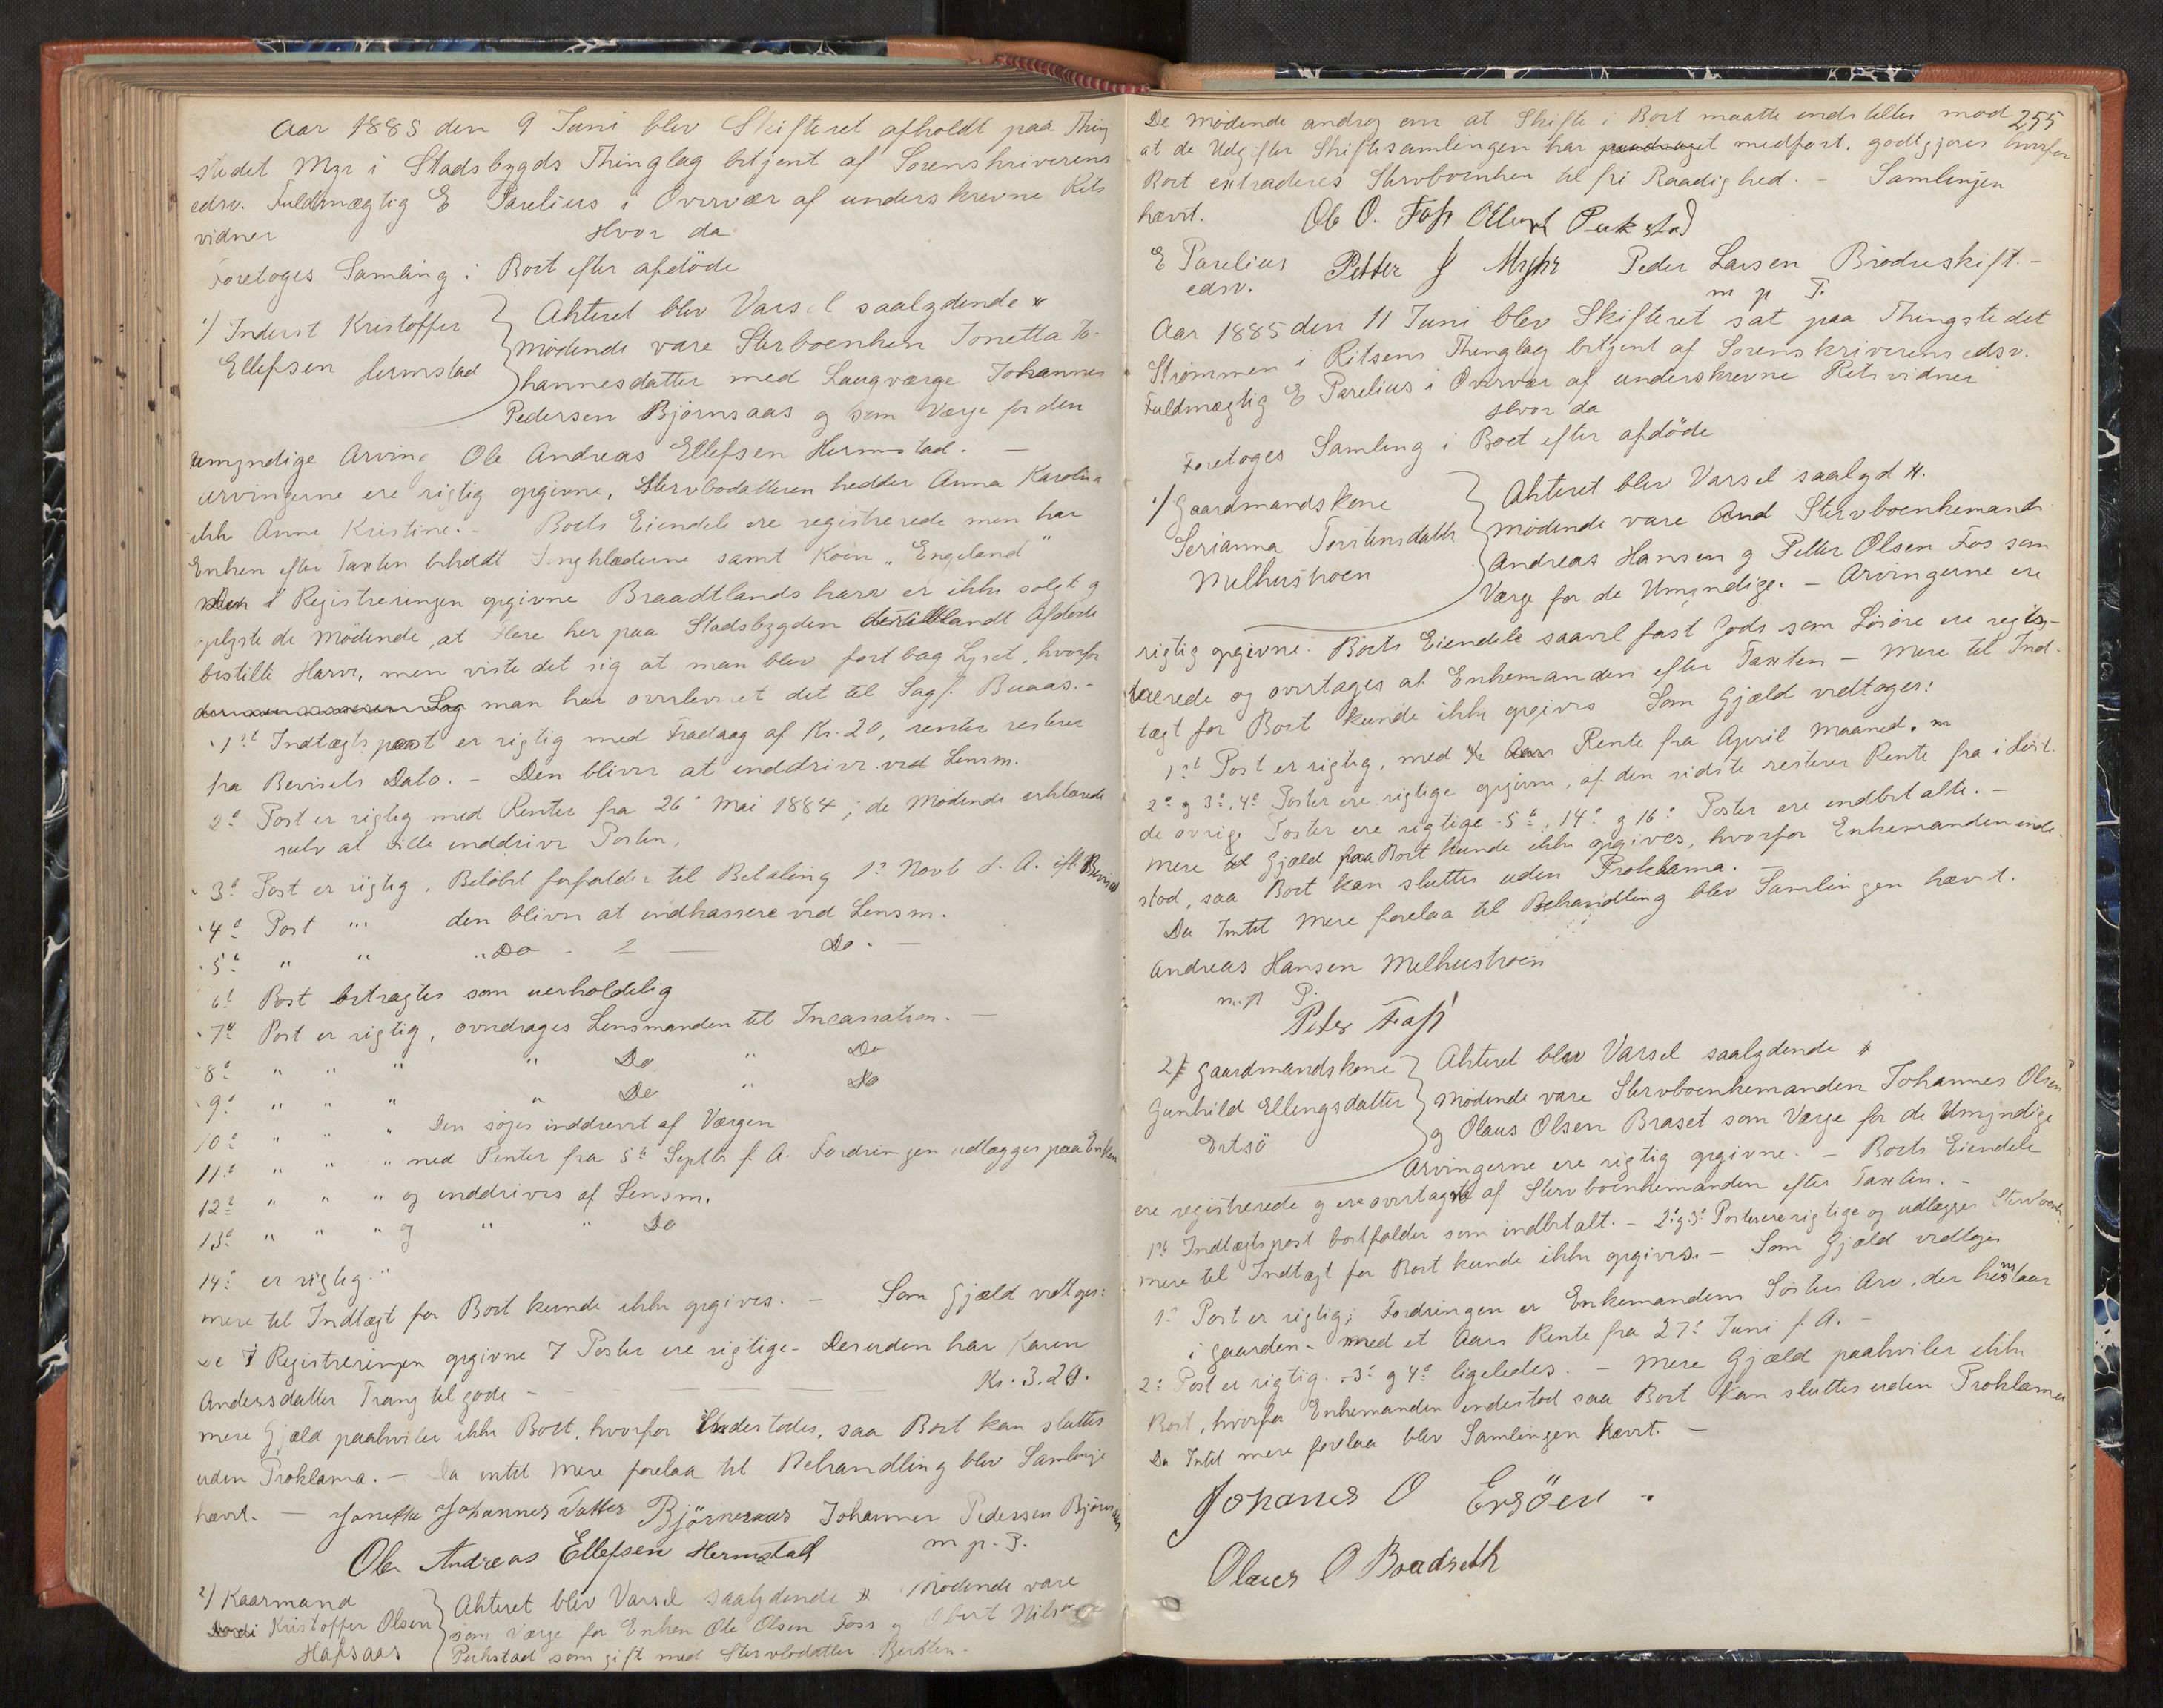 Aar 1885 den 9 Juni blev Skifteret afholdt paa Thing
stedet Myr i Stadsbygds Thinglag betjent af Sorenskriverens
edsv. Fuldmægtig E Parelius i Overvær af underskrevne Rets
vidner
Hvor da
Foretoges Samling i Boet efter afdöde
1/ Inderst Kristoffer
Ellefsen Hermstad
Akteret blev Varsel saalydende *
Mödende vare Sterboenken Jonetta Jo-
hannesdatter med Laugværge Johannes
Pedersen Björnsaas og som Værge for den
umyndige Arving Ole Andreas Ellefsen Hermstad. —
Arvingerne ere rigtig opgivne, Stervbodatteren hedder Anna Karolina
ikke Anne Kristine. - Boets Eiendele ere registrerede men har
Enken efter Taxten beholdt Sengklæderne samt Koen „Engeland"
Den i Registreringen opgivne Braadtlands harv er ikke solgt og
oplyste de Mödende, at Flere her paa Stadsbygden deriblandt Afdöde
bestilte Harve, men viste det sig at man blev fört bag Lyset, hvorfor
man har overleveret det til Sagf. Buaas. -
1st Indtægtspost er rigtig med Fradag af Kr. 20, renter resterer
fra Bevisets Dato. - Den bliver at inddrive ved Lensm.
2d Post er rigtig med Renter fra 26' Mai 1884; de Mödende erklærede
selv at ville inddrive Posten,
3d Post er rigtig, Belöbet forfalder til Betaling 1' Novb d. A. ifl. Beviset
4d Post „ den bliver at indkassere ved Lensm.
5te " " „ Do - - Do. -
6te Post betragtes som uerholdelig
7de Post er rigtig, overdrages Lensmanden til Incassation. —
8de " " " " Do " Do
9de " " " " Do " Do
10de " " " Den söges inddrevet af Værgen
11te " " " med Renter fra 5te Septbr f. A. Fordringen udlægges paa Enken
12te " " " og inddrives af Lensm.
13de " " " og " " Do
14de er rigtig. "
mere til Indtægt for Boet kunde ikke opgives. — Som Gjæld vedtoges:
De i Registreringen opgivne 7 Poster ere rigtige - Desuden har Karen
Andersdatter Trang tilgode - — Kr. 3.20.
mere Gjæld paahviler ikke Boet, hvorfor indestodes, saa Boet kan sluttes
uden Proklama. - Da intet mere forelaa til Behandling blev Samlingen
hævet. — Jonetta Johannes Datter Björneraas Johannes Pedersen Björnsaas
m p. P.
Ole Andreas Ellefsen Hermstad
2/ Kaarmand
Kristoffer Olsen
Hafsaas
Akteret blev Varsel saalydende * Mödende vare
som Værge for Enken Ole Olsen Foss og Olbert Nils
Pukstad som gift med Stervbodatter Beritten -
255
De mödende androg om at Skifte i Boet maatte indstilles mod
at de Udgifter Skiftesamlingen har medfört, godtgjores hvorfor
Boet extraderes Stervboenken til fri Raadighed. - Samlingen
hævet. Ole O. Foss Olbert Pukstad
E Parelius Petter J Myhr Peder Larsen Brödreskift -
edsv. m p P.
Aar 1885 den 11 Juni blev Skifteret sat paa Thingstedet
Strömmen i Ritsens Thinglag betjent af Sorenskriverens edsv.
Fuldmægtig E Parelius i Overvær af underskrevne Retsvidner
Hvor da
Foretoges Samling i Boet efter afdöde
1/ Gaardmandskone
Serianna Torstensdatter
Melhuskroen
Akteret blev Varsel saalyd *.
Mödende vare Stervboenkemand
Andreas Hansen og Petter Olsen Fos som
Værge for de Umyndige. - Arvingerne ere
rigtig opgivne. Boets Eiendele saavel fast Gods som Lösöre ere regis-
trerede og overtages af Enkemanden efter Taxten - Mere til Ind-
tægt for Boet kunde ikke opgives Som Gjæld vedtages:
1st Post er rigtig, med Rente fra April Maaned.
2d og 3d, 4d Poster ere rigtige opgivne, af den sidste resterer Rente fra i Höst.
de övrige Poster ere rigtige 5te, 14de og 16de Poster ere indbetalte. -
Mere Gjæld paa Boet kunde ikke opgives, hvorfor Enkemanden inde-
stod, saa Boet kan sluttes uden Proklama.
Da Intet mere forelaa til Behandling blev Samlingen hævet.
Andreas Hansen Melhuskroen
m. p P.
Peter Foss
2/ Gaardmandskone
Gunhild Ellingsdatter
Ertsö
Akteret blev Varsel saalydende *
Mödende vare Stervboenkemanden Johannes Olsen
og Olaus Olsen Braset som Værge for de Umyndige
Arvingerne ere rigtig opgivne. - Boets Eiendele
ere registrerede og ere overtagne af Stervboenkemanden efter Taxten. -
1st Indtægtspost bortfalder som indbetalt. - 2d og 3d Poster ere rigtige og udlægges Stervboenk.
mere til Indtægt for Boet kunde ikke opgives. - Som Gjæld vedtoges
1st Post er rigtig; Fordringen er Enkemandens Sösters Arv, der henstaar
i Gaarden - med et Aars Rente fra 27de Juni f. A. -
2d Post er rigtig. - 3d og 4d ligeledes. - Mere Gjæld paahviler ikke
Boet, hvorfor Enkemanden indestod saa Boet kan sluttes uden Proklama
Da Intet mere forelaa blev Samlingen hævet. -
Johanes O Ersöen .
Olaus O Braadseth